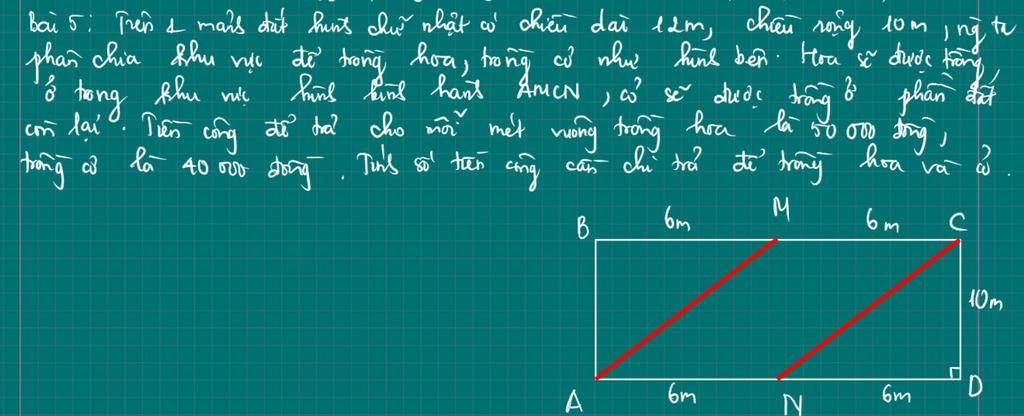 Bài 5: Trên 1 mảnh đất hình chữ nhật có chiều dài 12m, chiều rộng 10m, ng ta
phân chia khu vực để trồng hoa, trồng cỏ như hình bên. Hoa sẽ được trồng,
ở trong khu vực hình bình hành AMCN, cỏ sẽ được trồng ở phần đất
còn lại. Tiền công để trả cho mỗi mét vuông trồng hoa là 50 000 đồng,
trồng cỏ là 40 000 đồng. Tính số tiền công cần chi trả để trồng hoa và cỏ.
B 6m M 6m C
10m
A 6m N 6m D